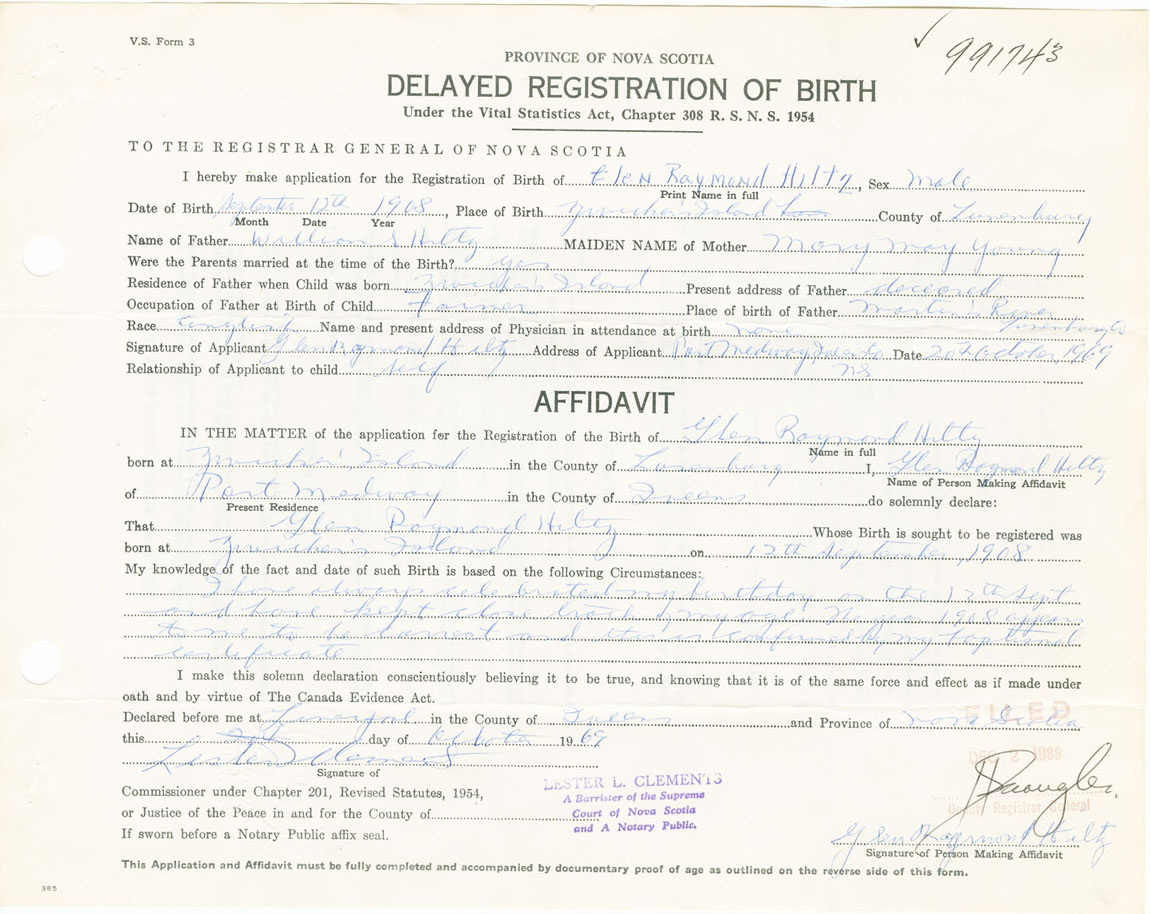 V.S. Form 3
991743
PROVINCE OF NOVA SCOTIA
DELAYED REGISTRATION OF BIRTH
Under the Vital Statistics Act, Chapter 308 R. S. N. S. 1954
TO THE REGISTRAR GENERAL OF NOVA SCOTIA
I hereby make application for the Registration of Birth of Glen Raymond Hiltz, Sex Male
Print Name in full
Date of Birth September 12th 1908, Place of Birth Zwicker's Island County of Lunenburg
Month Date Year
Name of Father William S Hiltz MAIDEN NAME of Mother Mary May Young
Were the Parents married at the time of the Birth? yes
Residence of Father when Child was born Zwicker's Island Present address of Father deceased
Occupation of Father at Birth of Child Farmer Place of birth of Father Martin's River
Lunenburg Co
Race English Name and present address of Physician in attendance at birth none
Signature of Applicant Glen Raymond Hiltz Address of Applicant Port Medway Queens Co Date 20th October, 1969
NS
Relationship of Applicant to child self
AFFIDAVIT
IN THE MATTER of the application for the Registration of the Birth of Glen Raymond Hiltz
Name in full
born at Zwicker's Island in the County of Lunenburg I, Glen Raymond Hiltz
Name of Person Making Affidavit
of Port Medway in the County of Queens do solemnly declare:
Present Residence
That Glen Raymond Hiltz Whose Birth is sought to be registered was
born at Zwicker's Island on 12th September, 1908
My knowledge of the fact and date of such Birth is based on the following Circumstances:
I have always celebrated my birthday on the 12th Sept
and have kept close track of my age. The year 1908 appears
to me to be correct and this is confirmed by my baptismal
certificate
I make this solemn declaration conscientiously believing it to be true, and knowing that it is of the same force and effect as if made under
oath and by virtue of The Canada Evidence Act.
Declared before me at Liverpool in the County of Queens and Province of Nova Scotia
FILED
this day of October 1969
DEC 2 1969
Lester L Clements
Signature of
Commissioner under Chapter 201, Revised Statutes, 1954,
or Justice of the Peace in and for the County of
If sworn before a Notary Public affix seal.
LESTER L. CLEMENTS
A Barrister of the Supreme
Court of Nova Scotia
and A Notary Public.
Deputy Registrar General
Glen Raymond Hiltz
Signature of Person Making Affidavit
This Application and Affidavit must be fully completed and accompanied by documentary proof of age as outlined on the reverse side of this form.
385